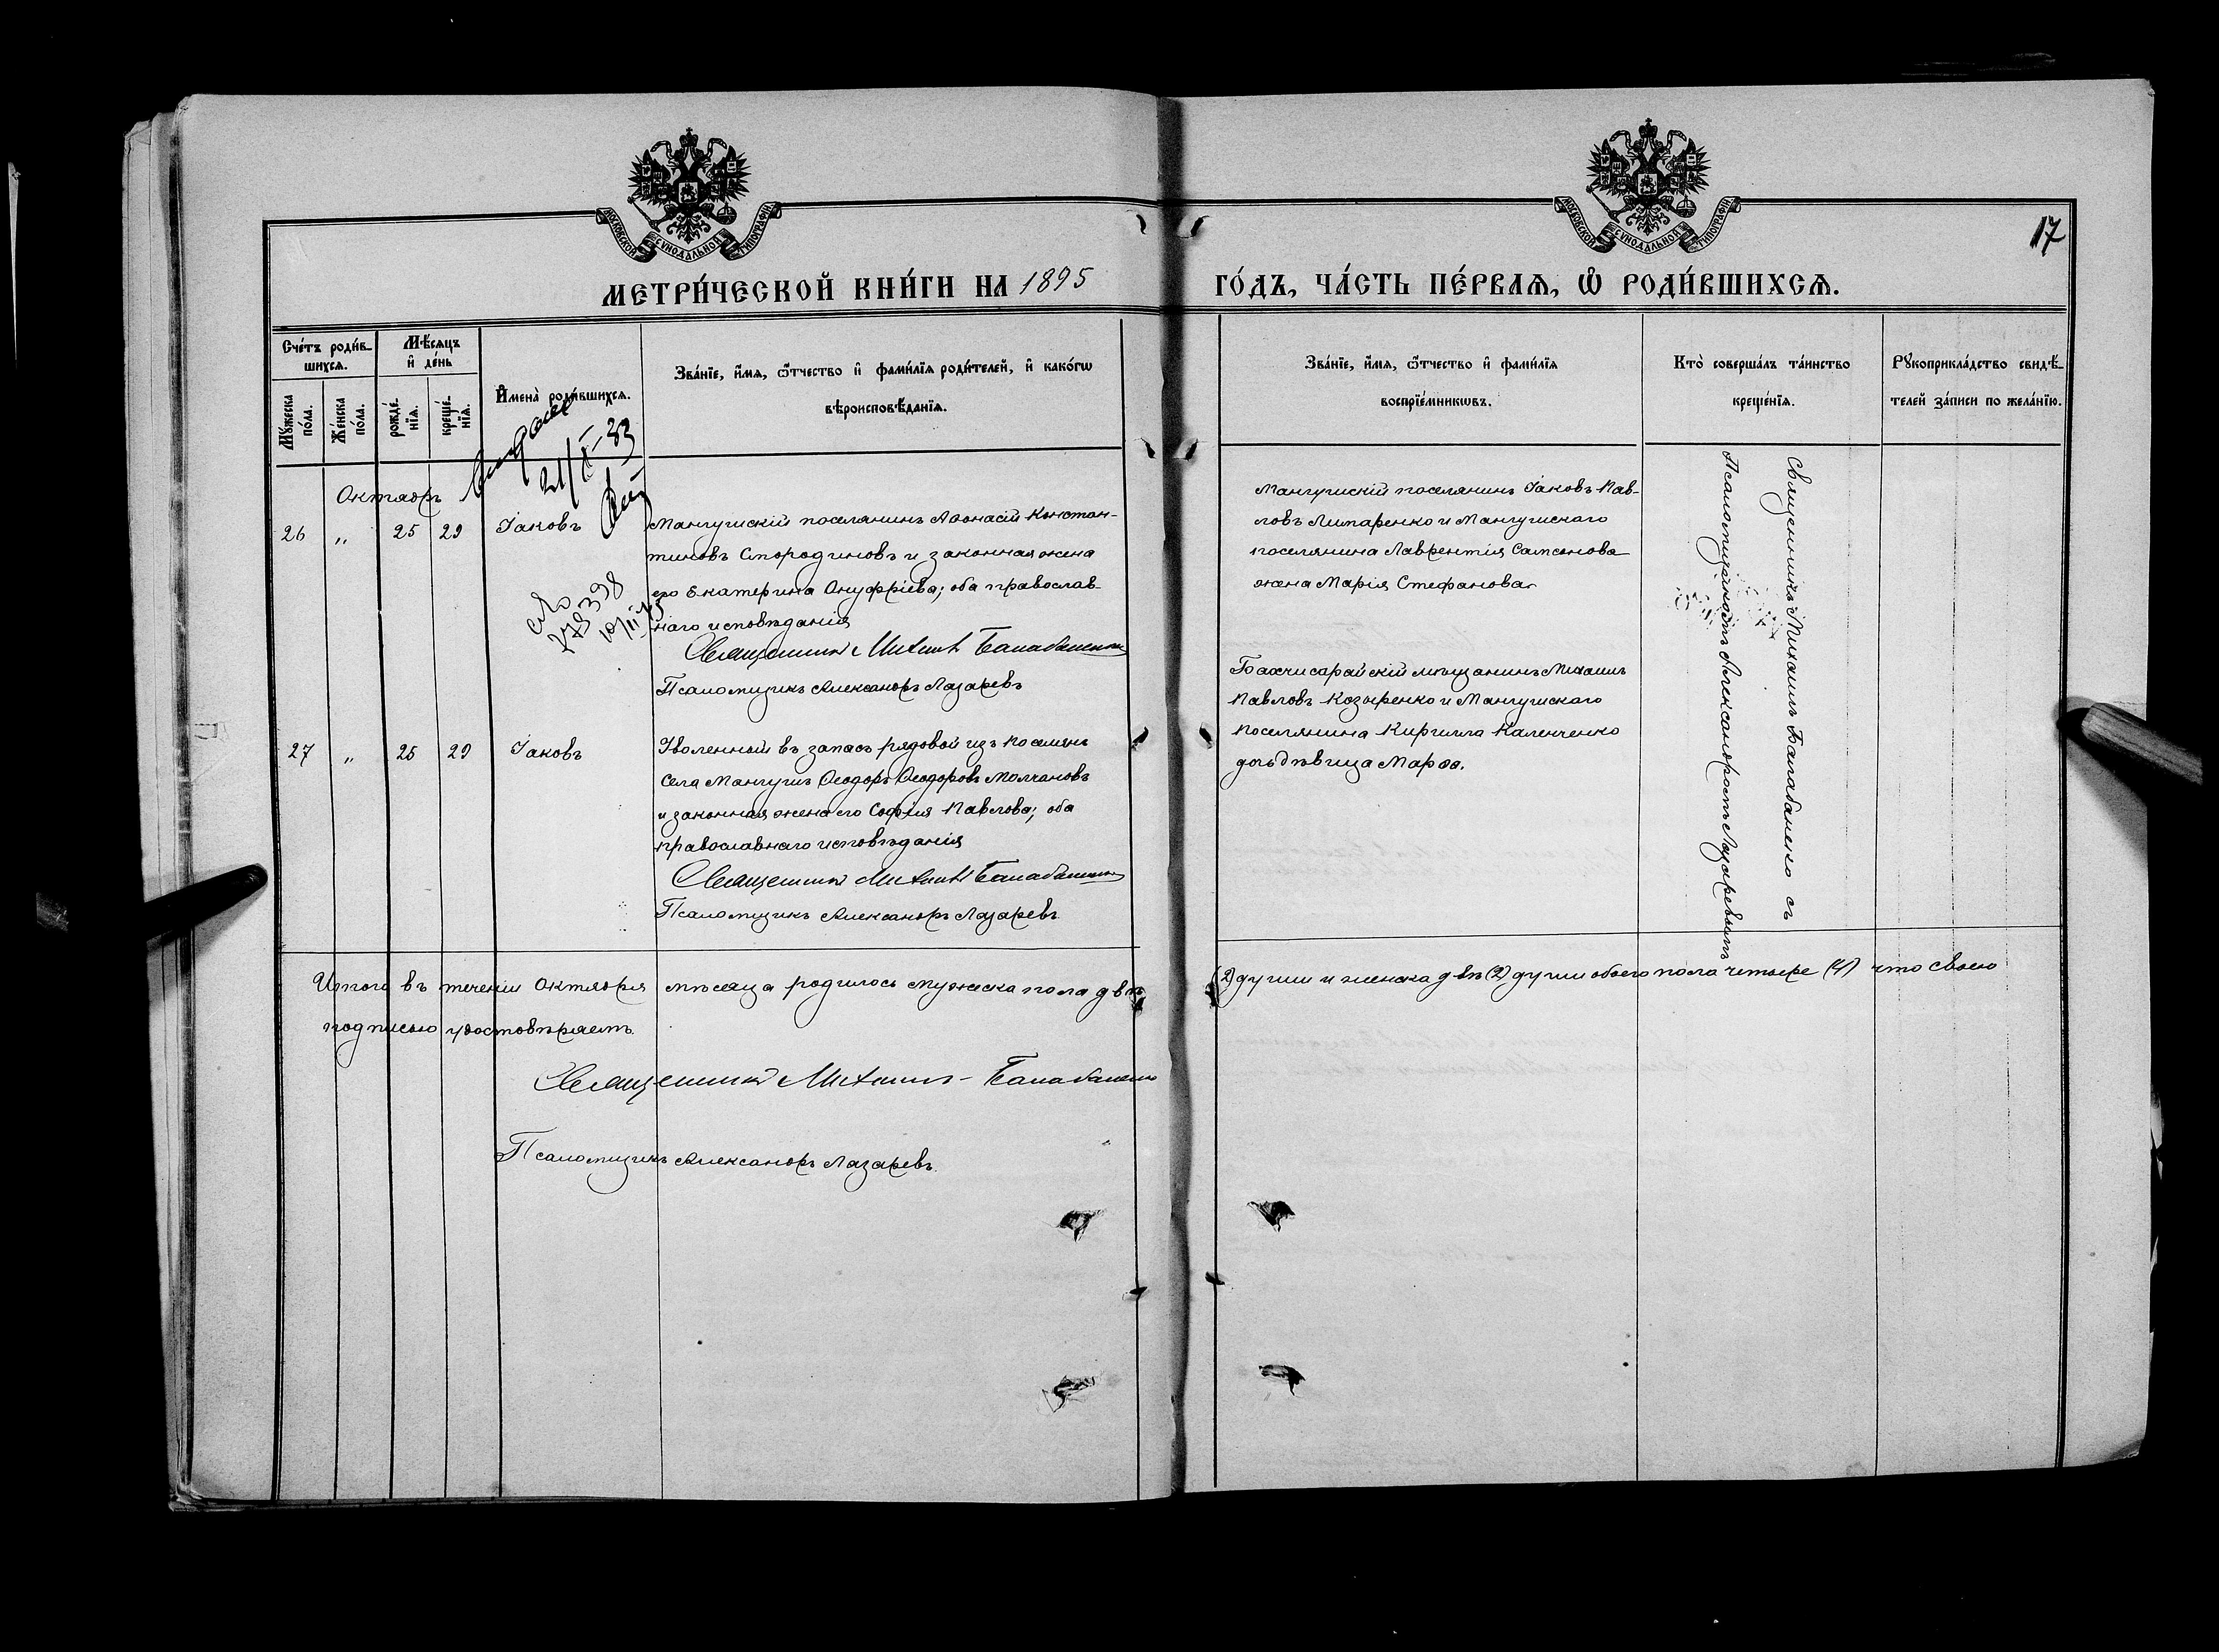 МОСКОВСКОЙ СѴНОДАЛЬНОЙ ТИПОГРАФІИ
МОСКОВСКОЙ СѴНОДАЛЬНОЙ ТИПОГРАФІИ
17
МЕТРИ́ЧЕСКОЙ КНИ́ГИ НА 1895
ГО́ДЪ, ЧА́СТЬ ПЕ́РВАѦ, Ѡ҆ РОДИ́ВШИХСѦ.
Сче́тъ роди́в-
шихсѧ.
Мѣ́сѧцъ
и҆ де́нь
Мꙋ́жеска
по́ла.
Же́нска
по́ла.
рожде́-
нїѧ.
креще́-
нїѧ.
И҆мена̀ роди́вшихсѧ.
Зва́нїе, и҆́мѧ, ѻ҆́тчество и҆ фами́лїѧ роди́телей, и҆ како́гѡ
вѣроисповѣ́данїѧ.
Зва́нїе, и҆́мѧ, ѻ҆́тчество и҆ фами́лїѧ
воспрїе́мникѡвъ.
Кто̀ соверша́лъ та́инство
креще́нїѧ.
Рꙋкоприкла́дство свидѣ́-
телей за́писи по жела́нїю.
21/X-33
Октябрь
26 „ 25 29 Іаковъ
Мангушскій поселянинъ Аѳонасій Констан-
тиновъ Смородиновъ и законная жена
его Екатерина Онуфріева; оба православ-
наго исповѣданія
Священникъ Михаилъ Балабаненко
Псаломщикъ Александръ Лазаревъ
278398
Мангушскій поселянинъ Іаковъ Пав-
ловъ Липаренко и Мангушскаго
поселянина Лаврентія Самсонова
жена Марія Стефанова
27 „ 25 29 Іаковъ
Уволенный въ запасъ рядовой изъ поселянъ
села Мангушъ Ѳеодоръ Ѳеодоровъ Молчановъ
и законная жена его Софія Павлова; оба
православнаго исповѣданія
Священникъ Михаилъ Балабаненко
Псаломщикъ Александръ Лазаревъ
Бахчисарайскій мѣщанинъ Михаилъ
Павловъ Козыренко и Мангушскаго
поселянина Кирилла Каленченко
дочь дѣвица Марѳа.
Священникъ Михаилъ Балабаненко съ
Псаломщикомъ Александромъ Лазаревымъ
Итого въ теченіи Октября мѣсяца родилось мужеска пола двѣ (2) души и женска двѣ (2) души обоего пола четыре (4) что своею
подписью удостовѣряемъ.
Священникъ Михаилъ Балабаненко
Псаломщикъ Александръ Лазаревъ.